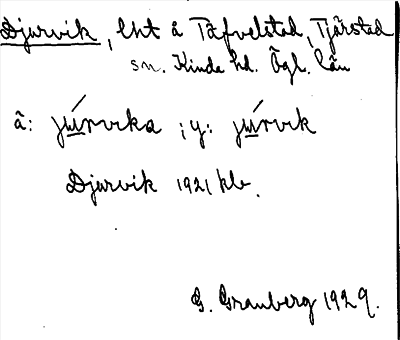 Djurvik, lht å Täfvelstad, Tjärstad
sn. Kinda hd. Ögl. län
ä: júrvika ; y: júrvik
Djurvik 1921 kbr.
G. Granberg 1929.